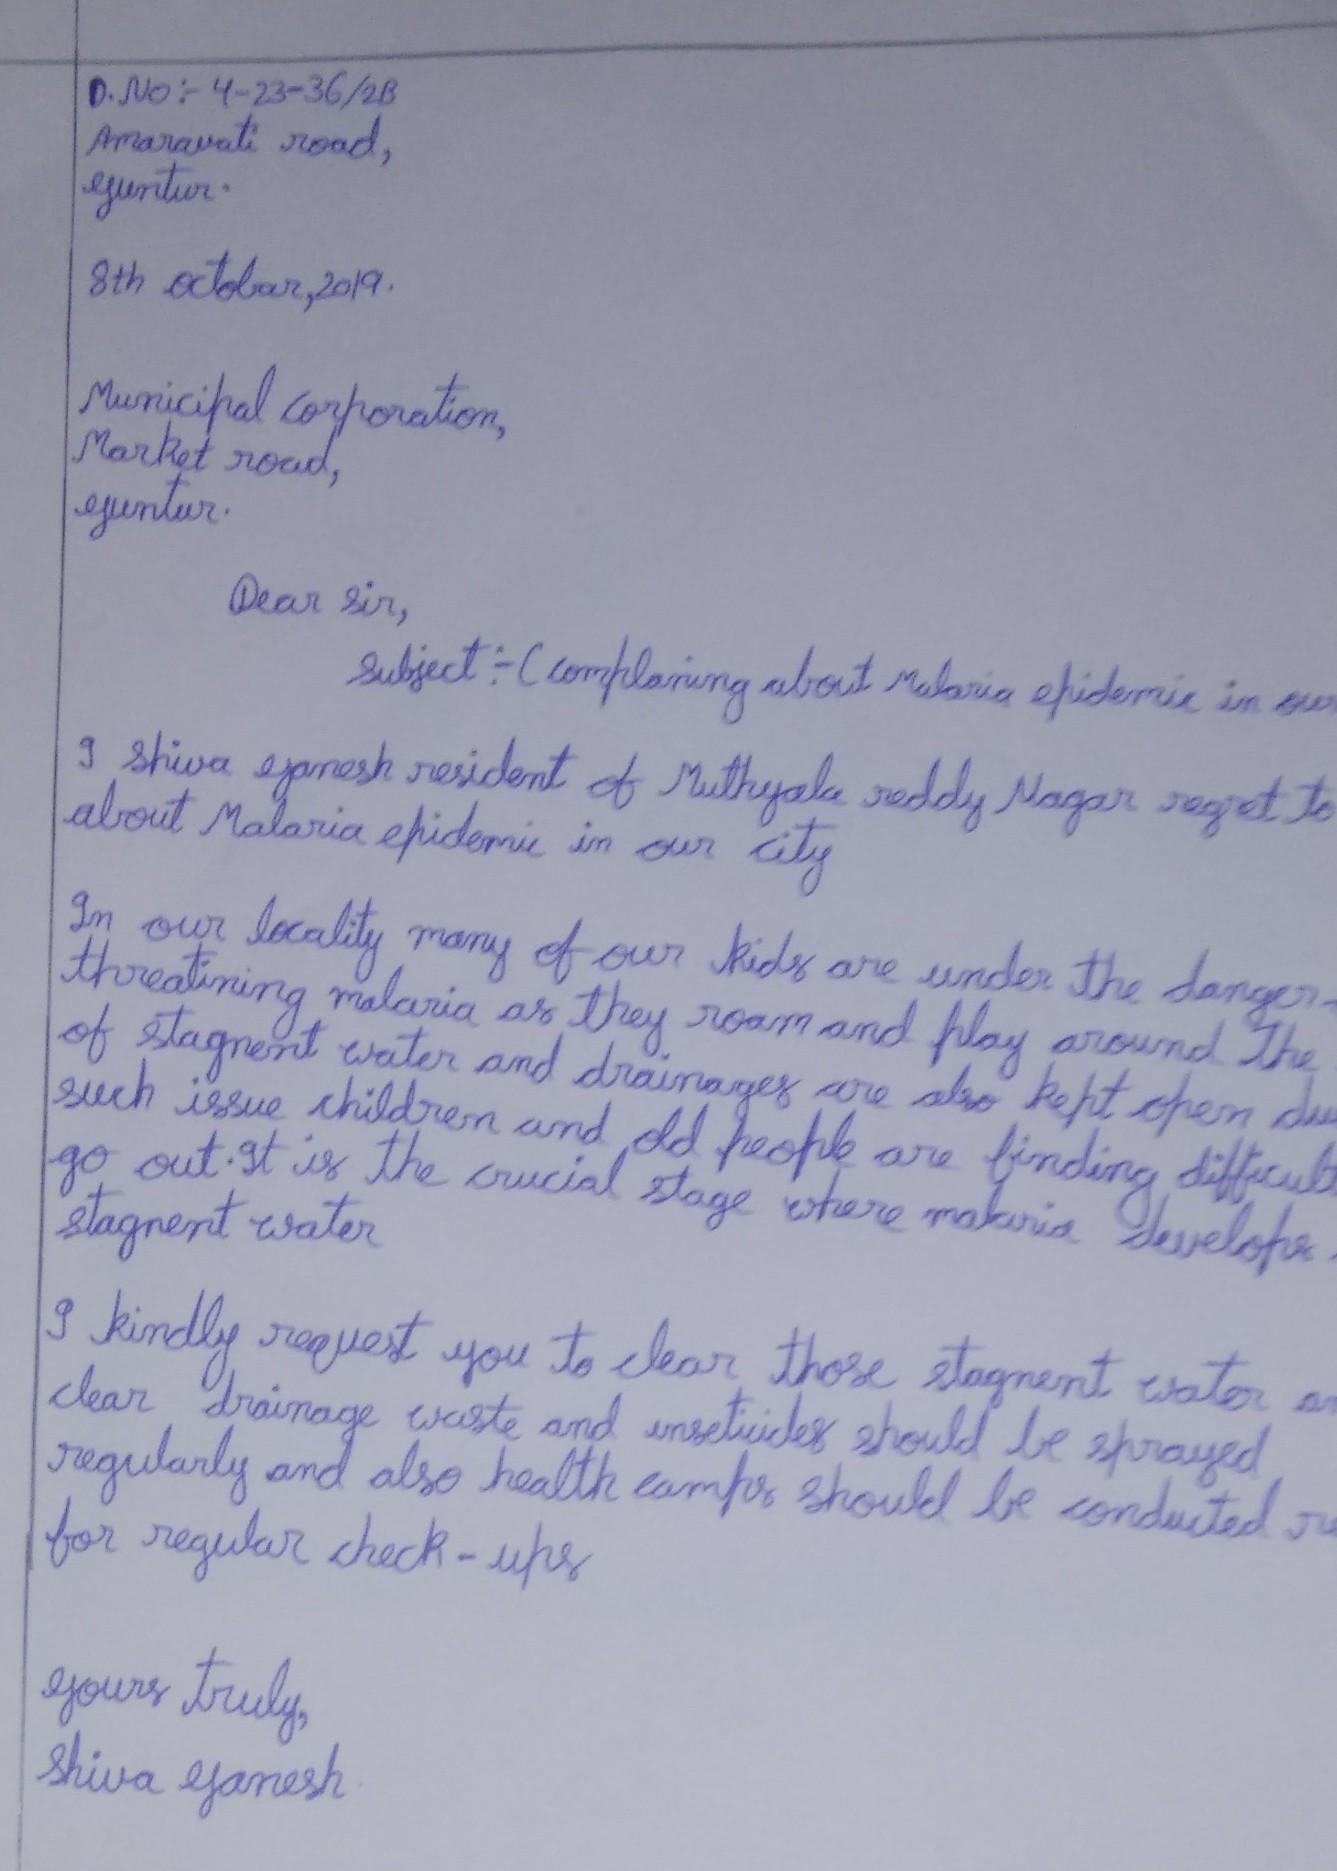 D.No:- 4-23-36/2B
Amaravati road,
Guntur.
8th octobar, 2019.
Municipal corporation,
Market road,
Guntur.
Dear sir,
Subject:- (complaning about Malaria epidemic in our
I Shiva Ganesh resident of Muthyala reddy Nagar regret to
about Malaria epidemic in our city
In our locality many of our kids are under the danger-
threatining malaria as they roam and play around The
of stagnent water and drainages are also kept open due
such issue children and old people are finding difficult
go out. It is the crucial stage where malaria develops
stagnent water
I kindly request you to clear those stagnent water
clear drainage waste and inseticides should be sprayed
regularly and also health camps should be conducted
for regular check-ups
yours truly,
Shiva Ganesh